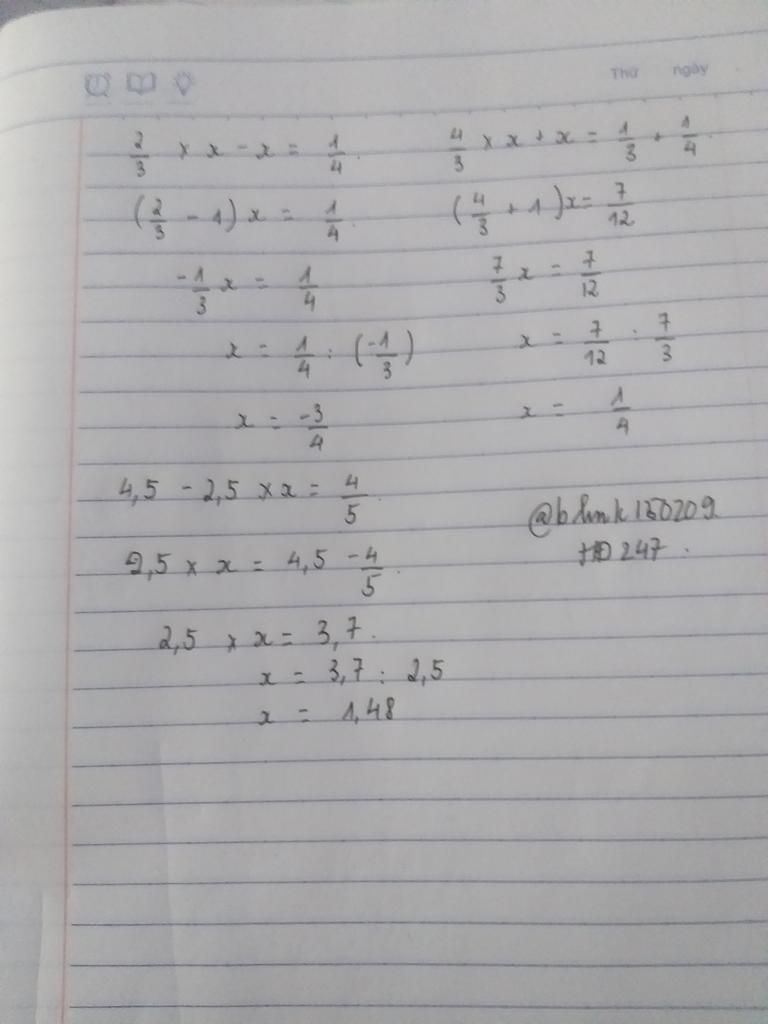 Thứ ngày
2/3 × x - x = 1/4
(2/3 - 1) x = 1/4
-1/3 x = 1/4
x = 1/4 : (-1/3)
x = -3/4
4/3 × x + x = 1/3 + 1/4
(4/3 + 1) x = 7/12
7/3 x = 7/12
x = 7/12 : 7/3
x = 1/4
4,5 - 2,5 × x = 4/5
2,5 × x = 4,5 - 4/5
2,5 × x = 3,7.
x = 3,7 : 2,5
x = 1,48
@blink150209
HD 247.